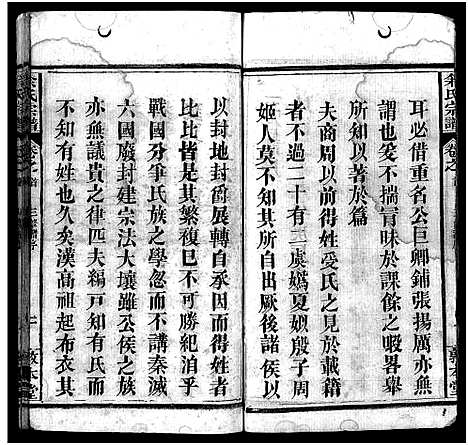 余氏宗譜
耳必借重名公巨卿鋪張揚厲亦無
謂也爰不揣冒昧於課餘之暇畧舉
所知以著於篇
夫商周以前得姓受氏之見於載籍
者不過二十有二虞媯夏姒殷子周
姬人莫不知其所自出厥後諸侯以
敦本堂
余氏宗譜
以封地封爵展轉自承因而得姓者
比比皆是其繁複已不可勝紀消乎
戰國分爭氏族之學忽而不講秦滅
六國廢封建宗法大壞雖公侯之族
亦無議貴之律匹夫編戸知有氏而
不知有姓也久矣漢高祖起布衣其
敦本堂